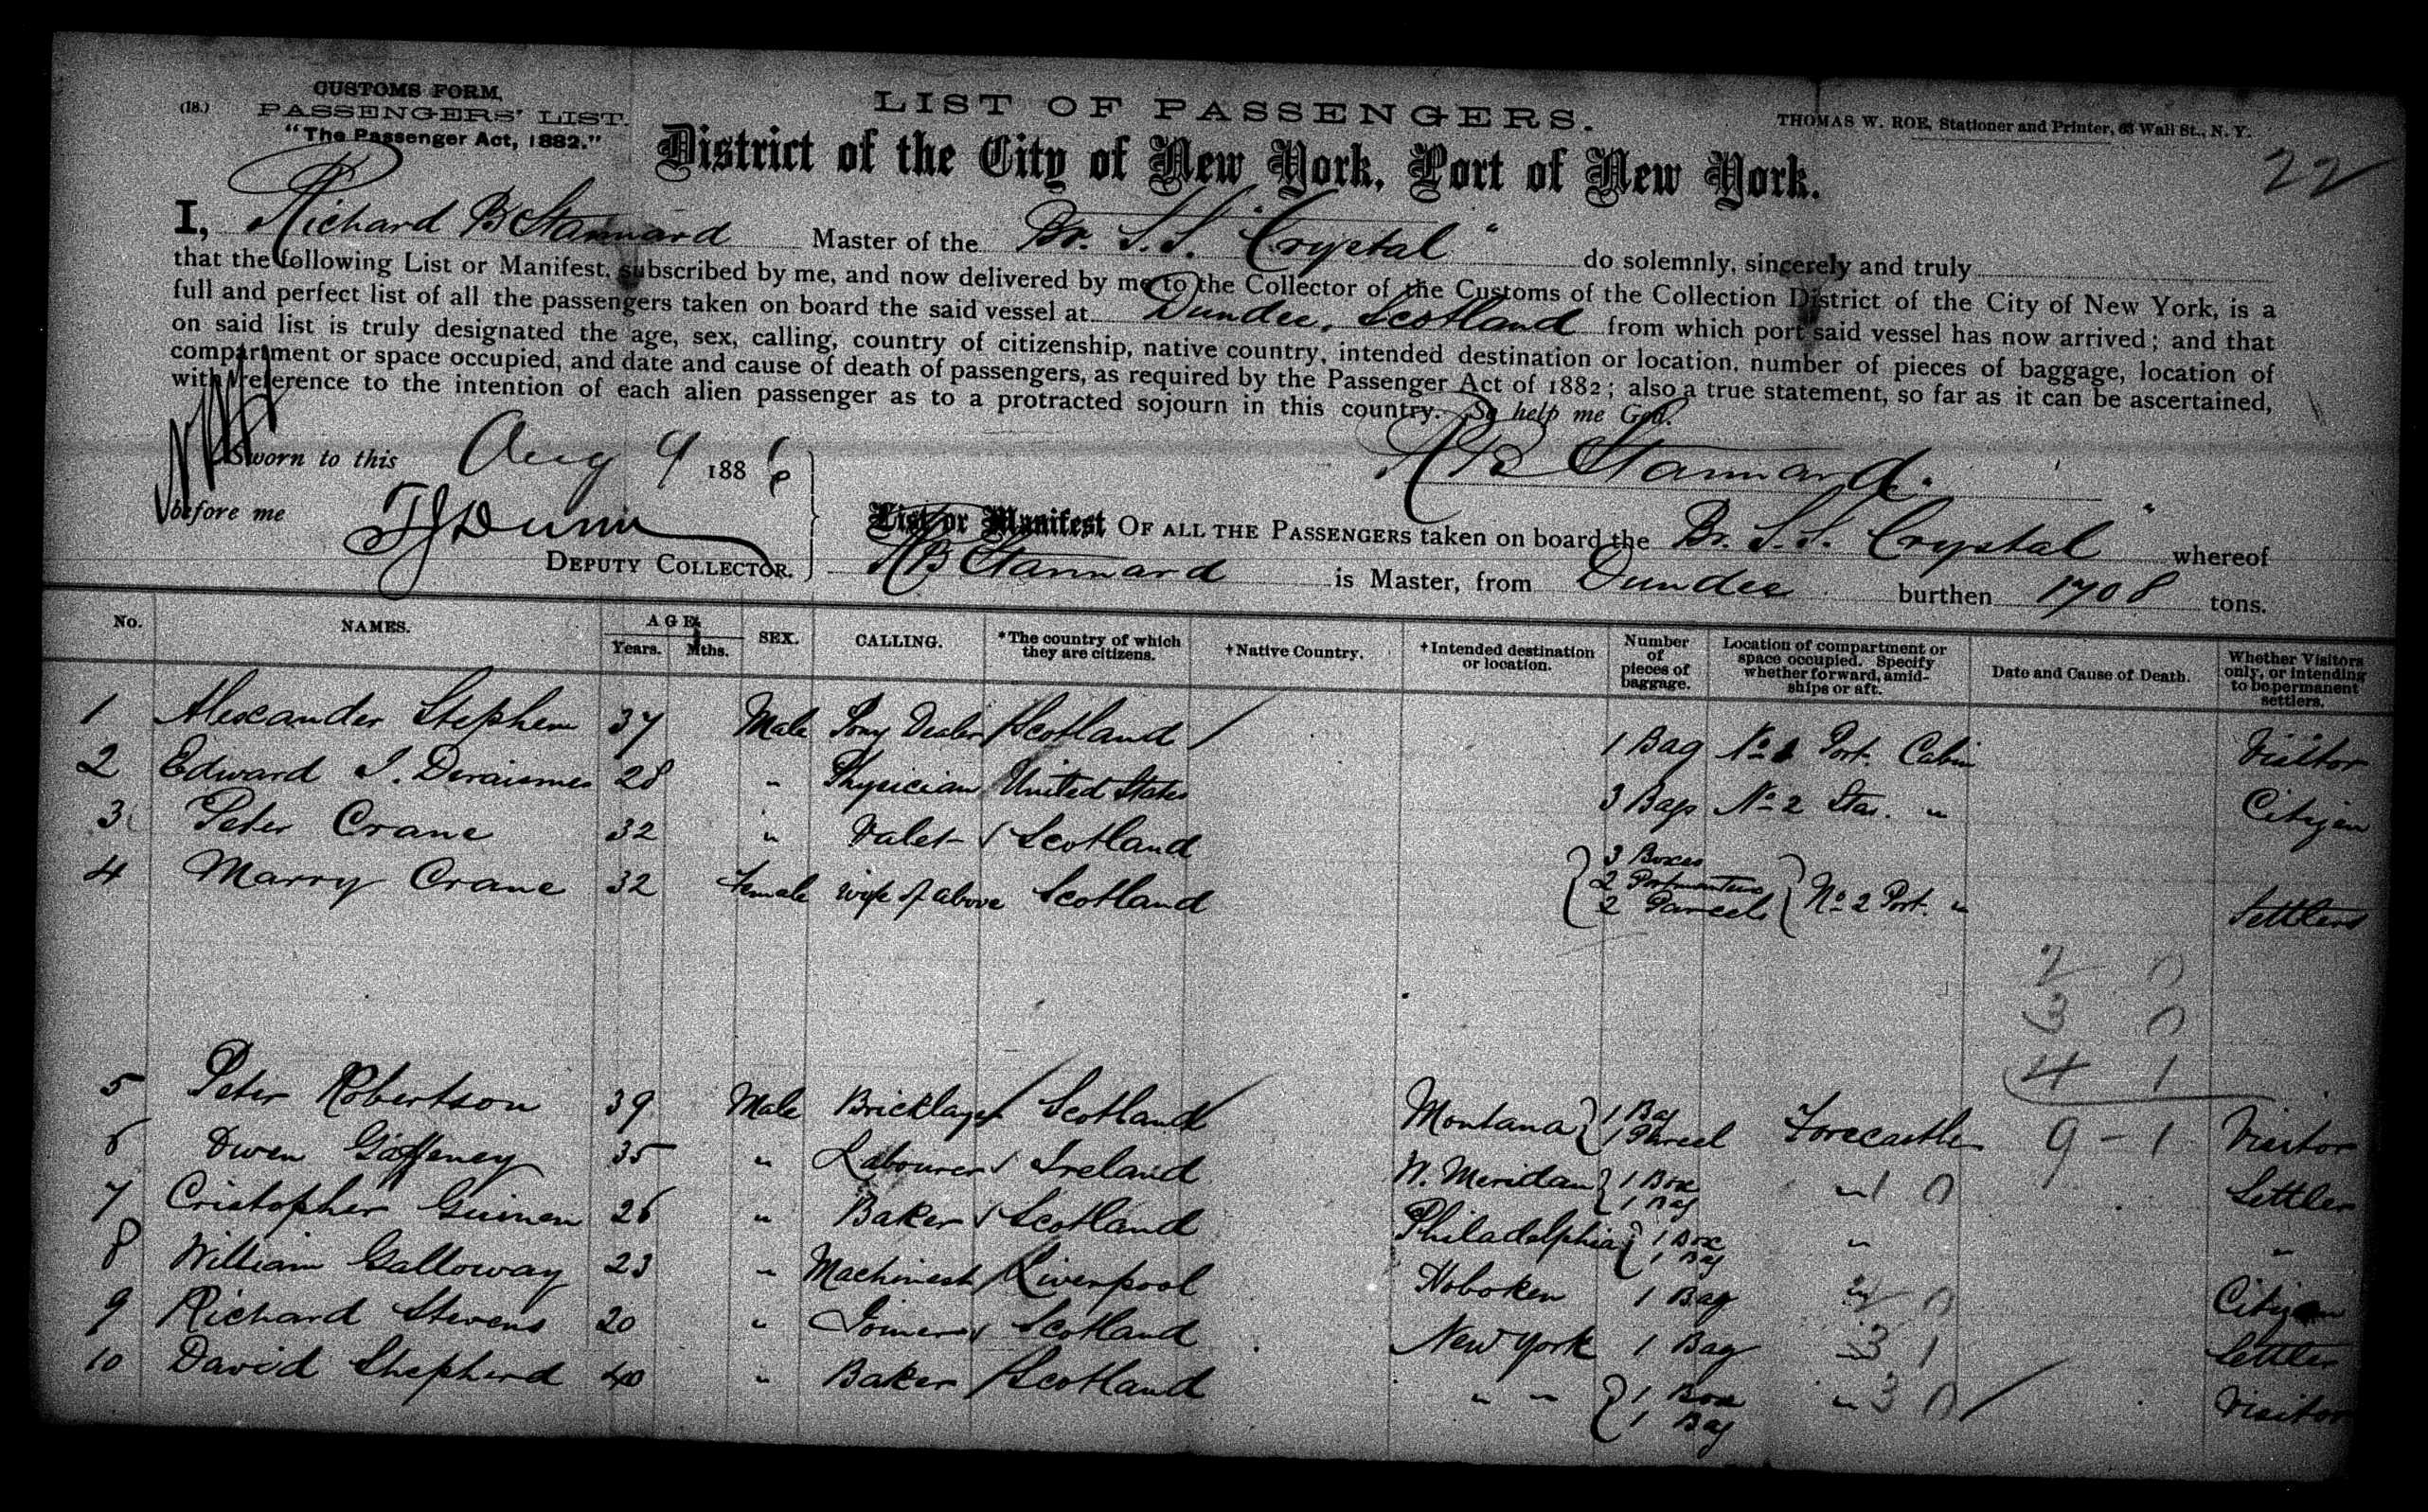 CUSTOMS FORM,
(18.) PASSENGERS' LIST.
"The Passenger Act, 1882."
LIST OF PASSENGERS.
THOMAS W. ROE, Stationer and Printer, 63 Wall St., N. Y.
District of the City of New York, Port of New York.
22
I, Richard B Stannard Master of the Br. S.S. "Crystal" do solemnly, sincerely and truly
that the following List or Manifest, subscribed by me, and now delivered by me to the Collector of the Customs of the Collection District of the City of New York, is a
full and perfect list of all the passengers taken on board the said vessel at Dundee, Scotland from which port said vessel has now arrived; and that
on said list is truly designated the age, sex, calling, country of citizenship, native country, intended destination or location, number of pieces of baggage, location of
compartment or space occupied, and date and cause of death of passengers, as required by the Passenger Act of 1882; also a true statement, so far as it can be ascertained,
with reference to the intention of each alien passenger as to a protracted sojourn in this country. So help me God.
Sworn to this Aug 9 1886
R B Stannard.
before me TJ Dunn
DEPUTY COLLECTOR.
List or Manifest OF ALL THE PASSENGERS taken on board the Br. S.S. Crystal" whereof
R B Stannard is Master, from Dundee burthen 1708 tons.
No. NAMES. AGE. Years. Mths. SEX. CALLING. *The country of which they are citizens. †Native Country. †Intended destination or location. Number of pieces of baggage. Location of compartment or space occupied. Specify whether forward, amidships or aft. Date and Cause of Death. Whether Visitors only, or intending to be permanent settlers.
1 Alexander Stephen 37 Male Pony Dealer Scotland 1 Bag No 1 Port. Cabin Visitor
2 Edward J. Deraismes 28 " Physician United States 3 Bags No 2 Star. " Citizen
3 Peter Crane 32 " Valet Scotland 3 Boxes
4 Marry Crane 32 Female wife of above Scotland 2 Portmanteus 2 Parcels No 2 Port. " Settlers
2 0
3 0
4 1
5 Peter Robertson 39 Male Bricklayer Scotland Montana 1 Bag 1 Parcel Forecastle 9 - 1 Visitor
6 Owen Gaffeney 35 " Labourer Ireland W. Meridan 1 Box 1 Bag " 1 0 Settler
7 Cristopher Guinen 26 " Baker Scotland Philadelphia 1 Box 1 Bag " "
8 William Galloway 23 " Machinest Liverpool Hoboken 1 Bag " 2 0 Citizen
9 Richard Stevens 20 " Joiner Scotland New York 1 Bag " 3 1 Settler
10 David Shepherd 40 " Baker Scotland " " 1 Box 1 Bag " 3 0 Visitor